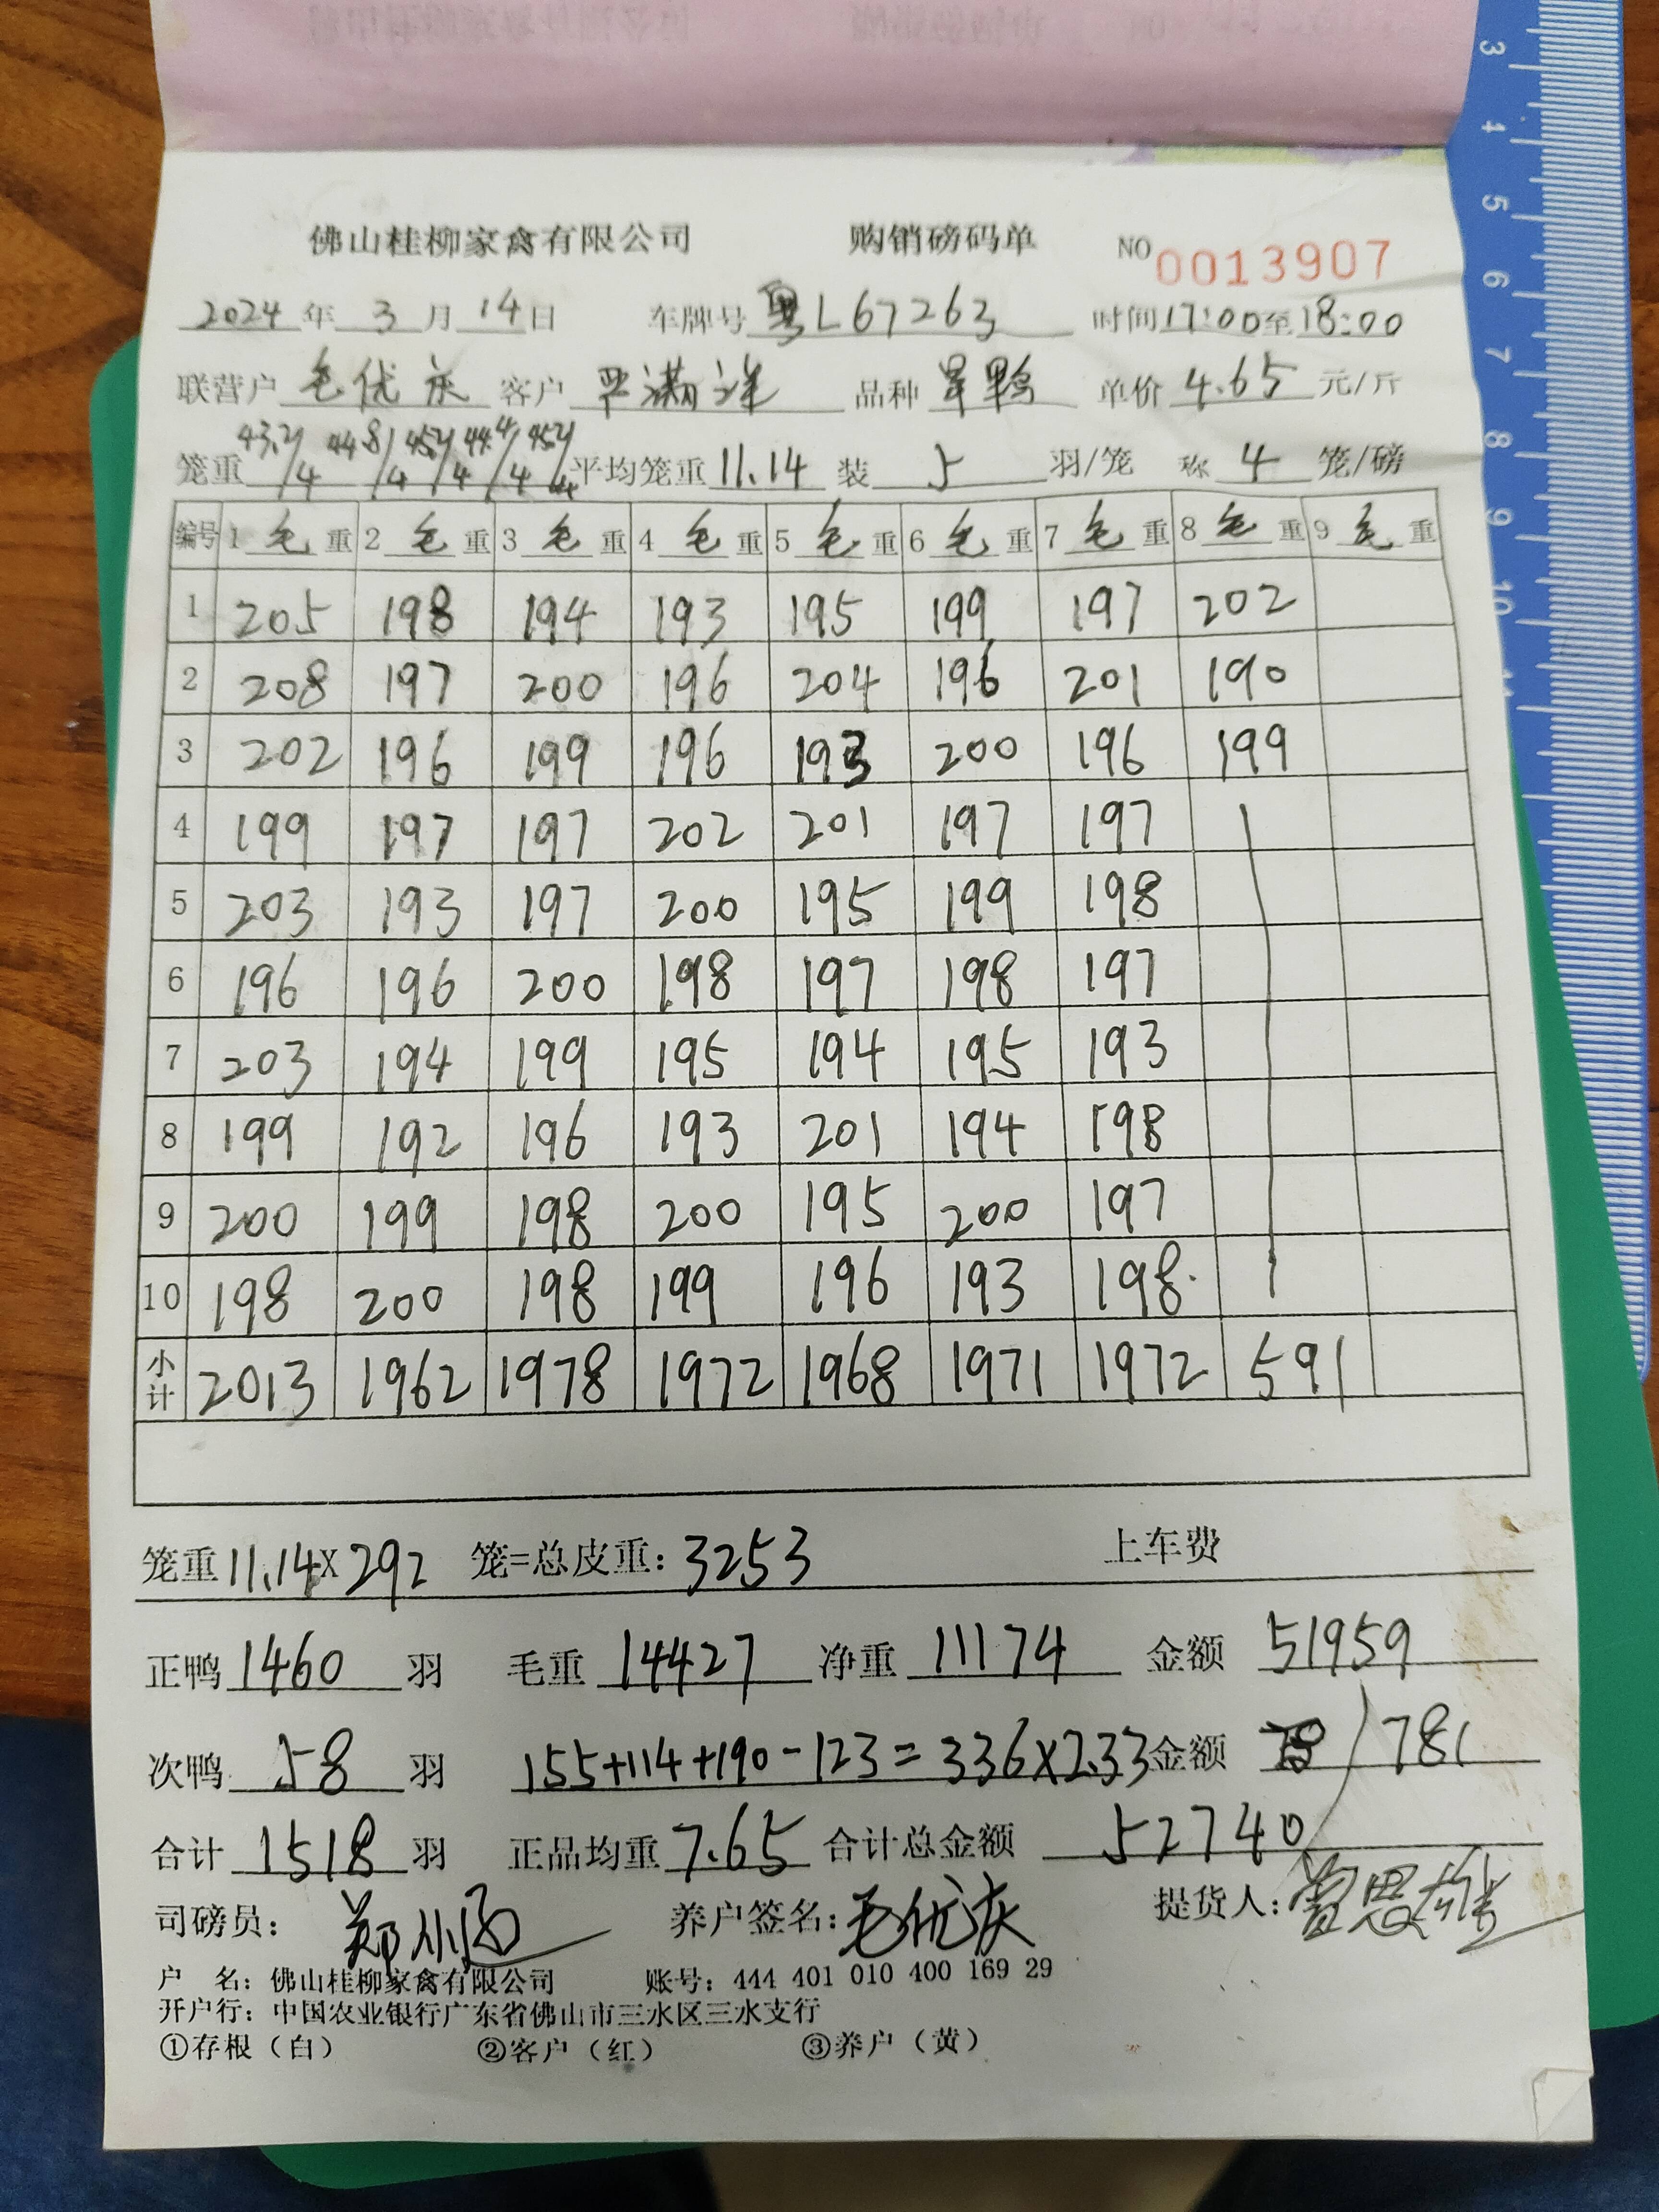 佛山桂柳家禽有限公司 购销磅码单 NO 0013907
2024年3月14日 车牌号 粤L67263 时间17:00至18:00
联营户 毛优灰 客户 满 品种 旱鸭 单价 4.65 元/斤
笼重 43.2/4 44.8/4 45.2/4 44.4/4 45.2/4 平均笼重 11.14 装 5 羽/笼 称 4 笼/磅
编号 1毛重 2毛重 3毛重 4毛重 5毛重 6毛重 7毛重 8毛重 9毛重
1 205 198 194 193 195 199 197 202
2 208 197 200 196 204 196 201 190
3 202 196 199 196 193 200 196 199
4 199 197 197 202 201 197 197
5 203 193 197 200 195 199 198
6 196 196 200 198 197 198 197
7 203 194 199 195 194 195 193
8 199 192 196 193 201 194 198
9 200 199 198 200 195 200 197
10 198 200 198 199 196 193 198
小计 2013 1962 1978 1972 1968 1971 1972 591
笼重11.14X292 笼=总皮重:3253 上车费
正鸭1460羽 毛重14427 净重11174 金额51959
次鸭58羽 155+114+190-123=336X2.33金额 781
合计1518羽 正品均重7.65 合计总金额 52740
司磅员: 郑 养户签名:毛优灰 提货人:曾思雄
户 名: 佛山桂柳家禽有限公司 账号: 444 401 010 400 169 29
开户行: 中国农业银行广东省佛山市三水区三水支行
①存根(白) ②客户(红) ③养户(黄)
3
4
5
6
7
8
9
10